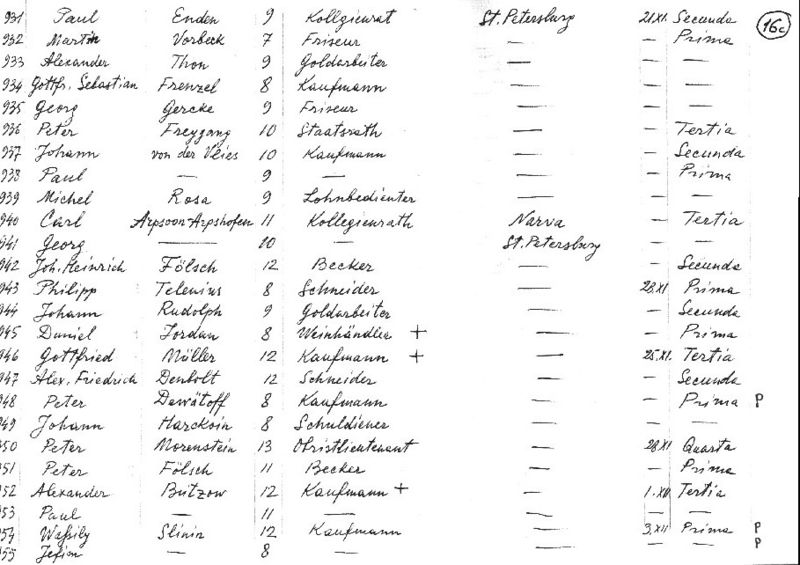 931 Paul Enden 9 Kollgienrat St. Petersburg 21XI. Secunda 16c
932 Martin Vorbeck 7 Friseur — — Prima
933 Alexander Thon 9 Goldarbeiter — — —
934 Gottfr. Sebastian Frenzel 8 Kaufmann — — —
935 Georg Gercke 9 Friseur — — —
936 Peter Freygang 10 Staatsrath — — Tertia
937 Johann von der Vlies 10 Kaufmann — — Secunda
938 Paul — 9 — — — Prima
939 Michel Rosa 9 Lohnbedienter — — —
940 Carl Arpsoon-Arpshofen 11 Kollegienrath Narva — Tertia
941 Georg — 10 — St. Petersburg
942 Joh. Heinrich Fölsch 12 Becker — — Secunda
943 Philipp Telenius 8 Schneider — 28.XI Prima
944 Johann Rudolph 9 Goldarbeiter — — Secunda
945 Daniel Jordan 8 Weinhändler + — — Prima
946 Gottfried Möller 12 Kaufmann + — 25.XI. Tertia
947 Alex. Friedrich Denbolt 12 Schneider — — Secunda
948 Peter Dawätoff 8 Kaufmann — — Prima P
949 Johann Harckoin 8 Schuldiener — — —
950 Peter Morenstein 13 Obristlieutenant — 28.XI Quarta
951 Peter Fölsch 11 Becker — — Prima
952 Alexander Bützow 12 Kaufmann + — 1.XII Tertia
953 Paul — 11 — — — —
954 Waßily Slinin 12 Kaufmann — 3.XII Prima P
955 Jefim — 8 — — — — P